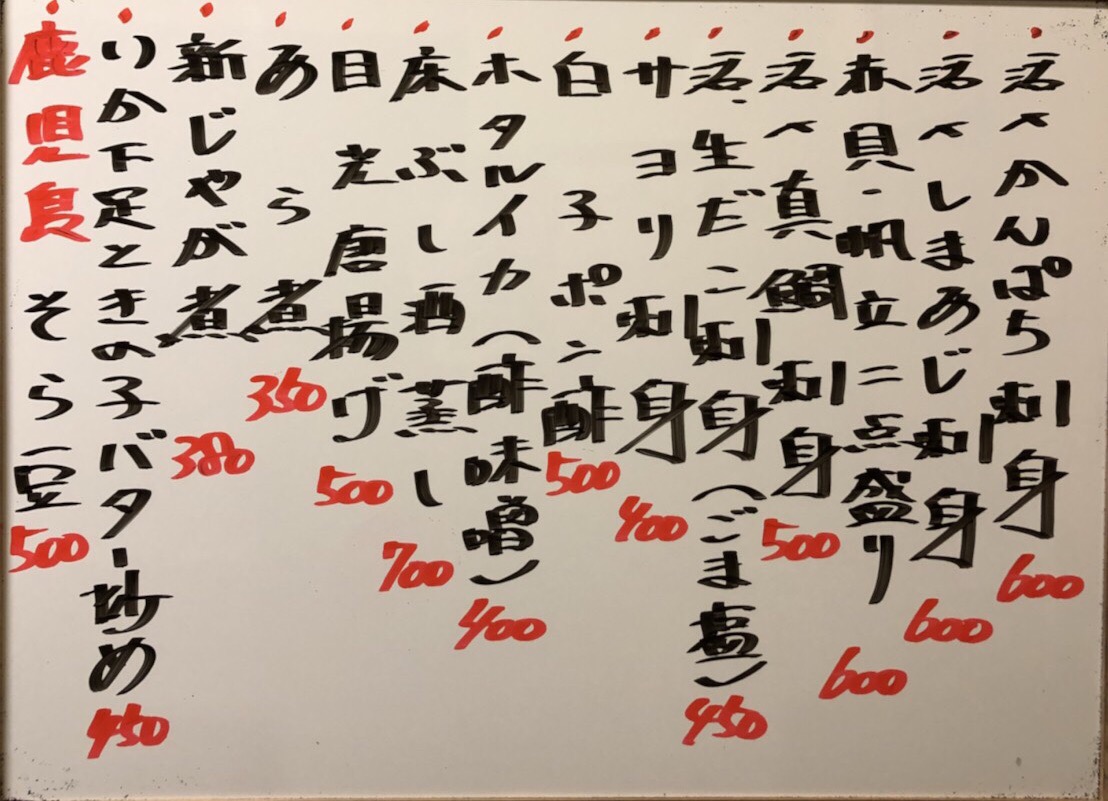 活〆かんぱち刺身 600
活〆しまあじ刺身 600
赤貝・帆立二点盛り 600
活〆真鯛刺身 500
活・生だこ刺身(ごま塩) 450
サヨリ刺身 400
白子ポン酢 500
ホタルイカ(酢味噌) 400
床ぶし酒蒸し 700
目光唐揚げ 500
あら煮 350
新じゃが煮 380
いか下足ときの子バター炒め 450
鹿児島そら豆 500